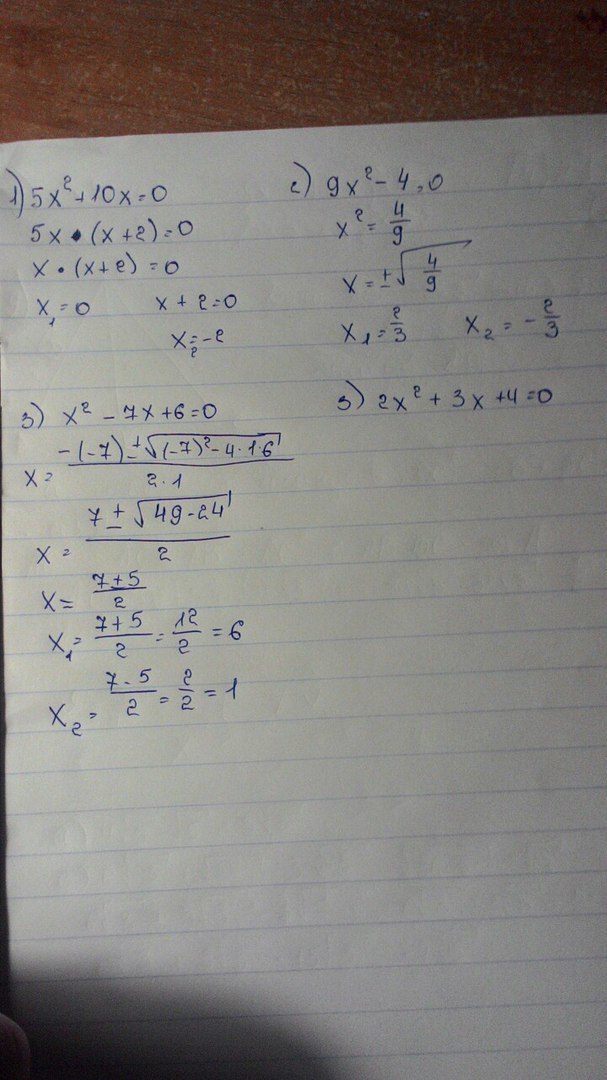 1) 5x² + 10x = 0
5x • (x + 2) = 0
x • (x + 2) = 0
x₁ = 0 x + 2 = 0
x₂ = -2
2) 9x² - 4 = 0
x² = 4/9
x = ±√(4/9)
x₁ = 2/3 x₂ = -2/3
3) x² - 7x + 6 = 0
x = (-(-7) ± √((-7)² - 4·1·6)) / (2·1)
x = (7 ± √(49 - 24)) / 2
x = (7 ± 5)/2
x₁ = (7 + 5)/2 = 12/2 = 6
x₂ = (7 - 5)/2 = 2/2 = 1
3) 2x² + 3x + 4 = 0